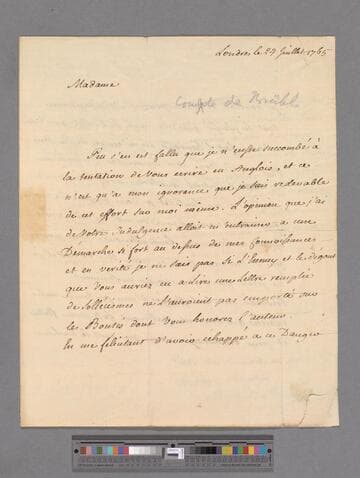 Londres le 27 Juillet 1765
Madame
Compte de Brühl
Peu s'en est fallu que je n'eusse succombé à
la tentation de vous ecrire en Anglois, et ce
n'est qu'a mon ignorance que je suis redevable
de cet effort sur moi même. L'opinion que j'ai
de votre Indulgence alloit m'entrainer a une
Demarche si fort au dessus de mes connoissances
et en verité je ne sais pas si L'Ennuy et le degout
que vous auriez eu a Lire une Lettre remplie
de sollécismes ne L'auroient pas emporté sur
les Bontés dont vous honorez l'auteur.
En me felicitant d'avoir echappé a ce Danger